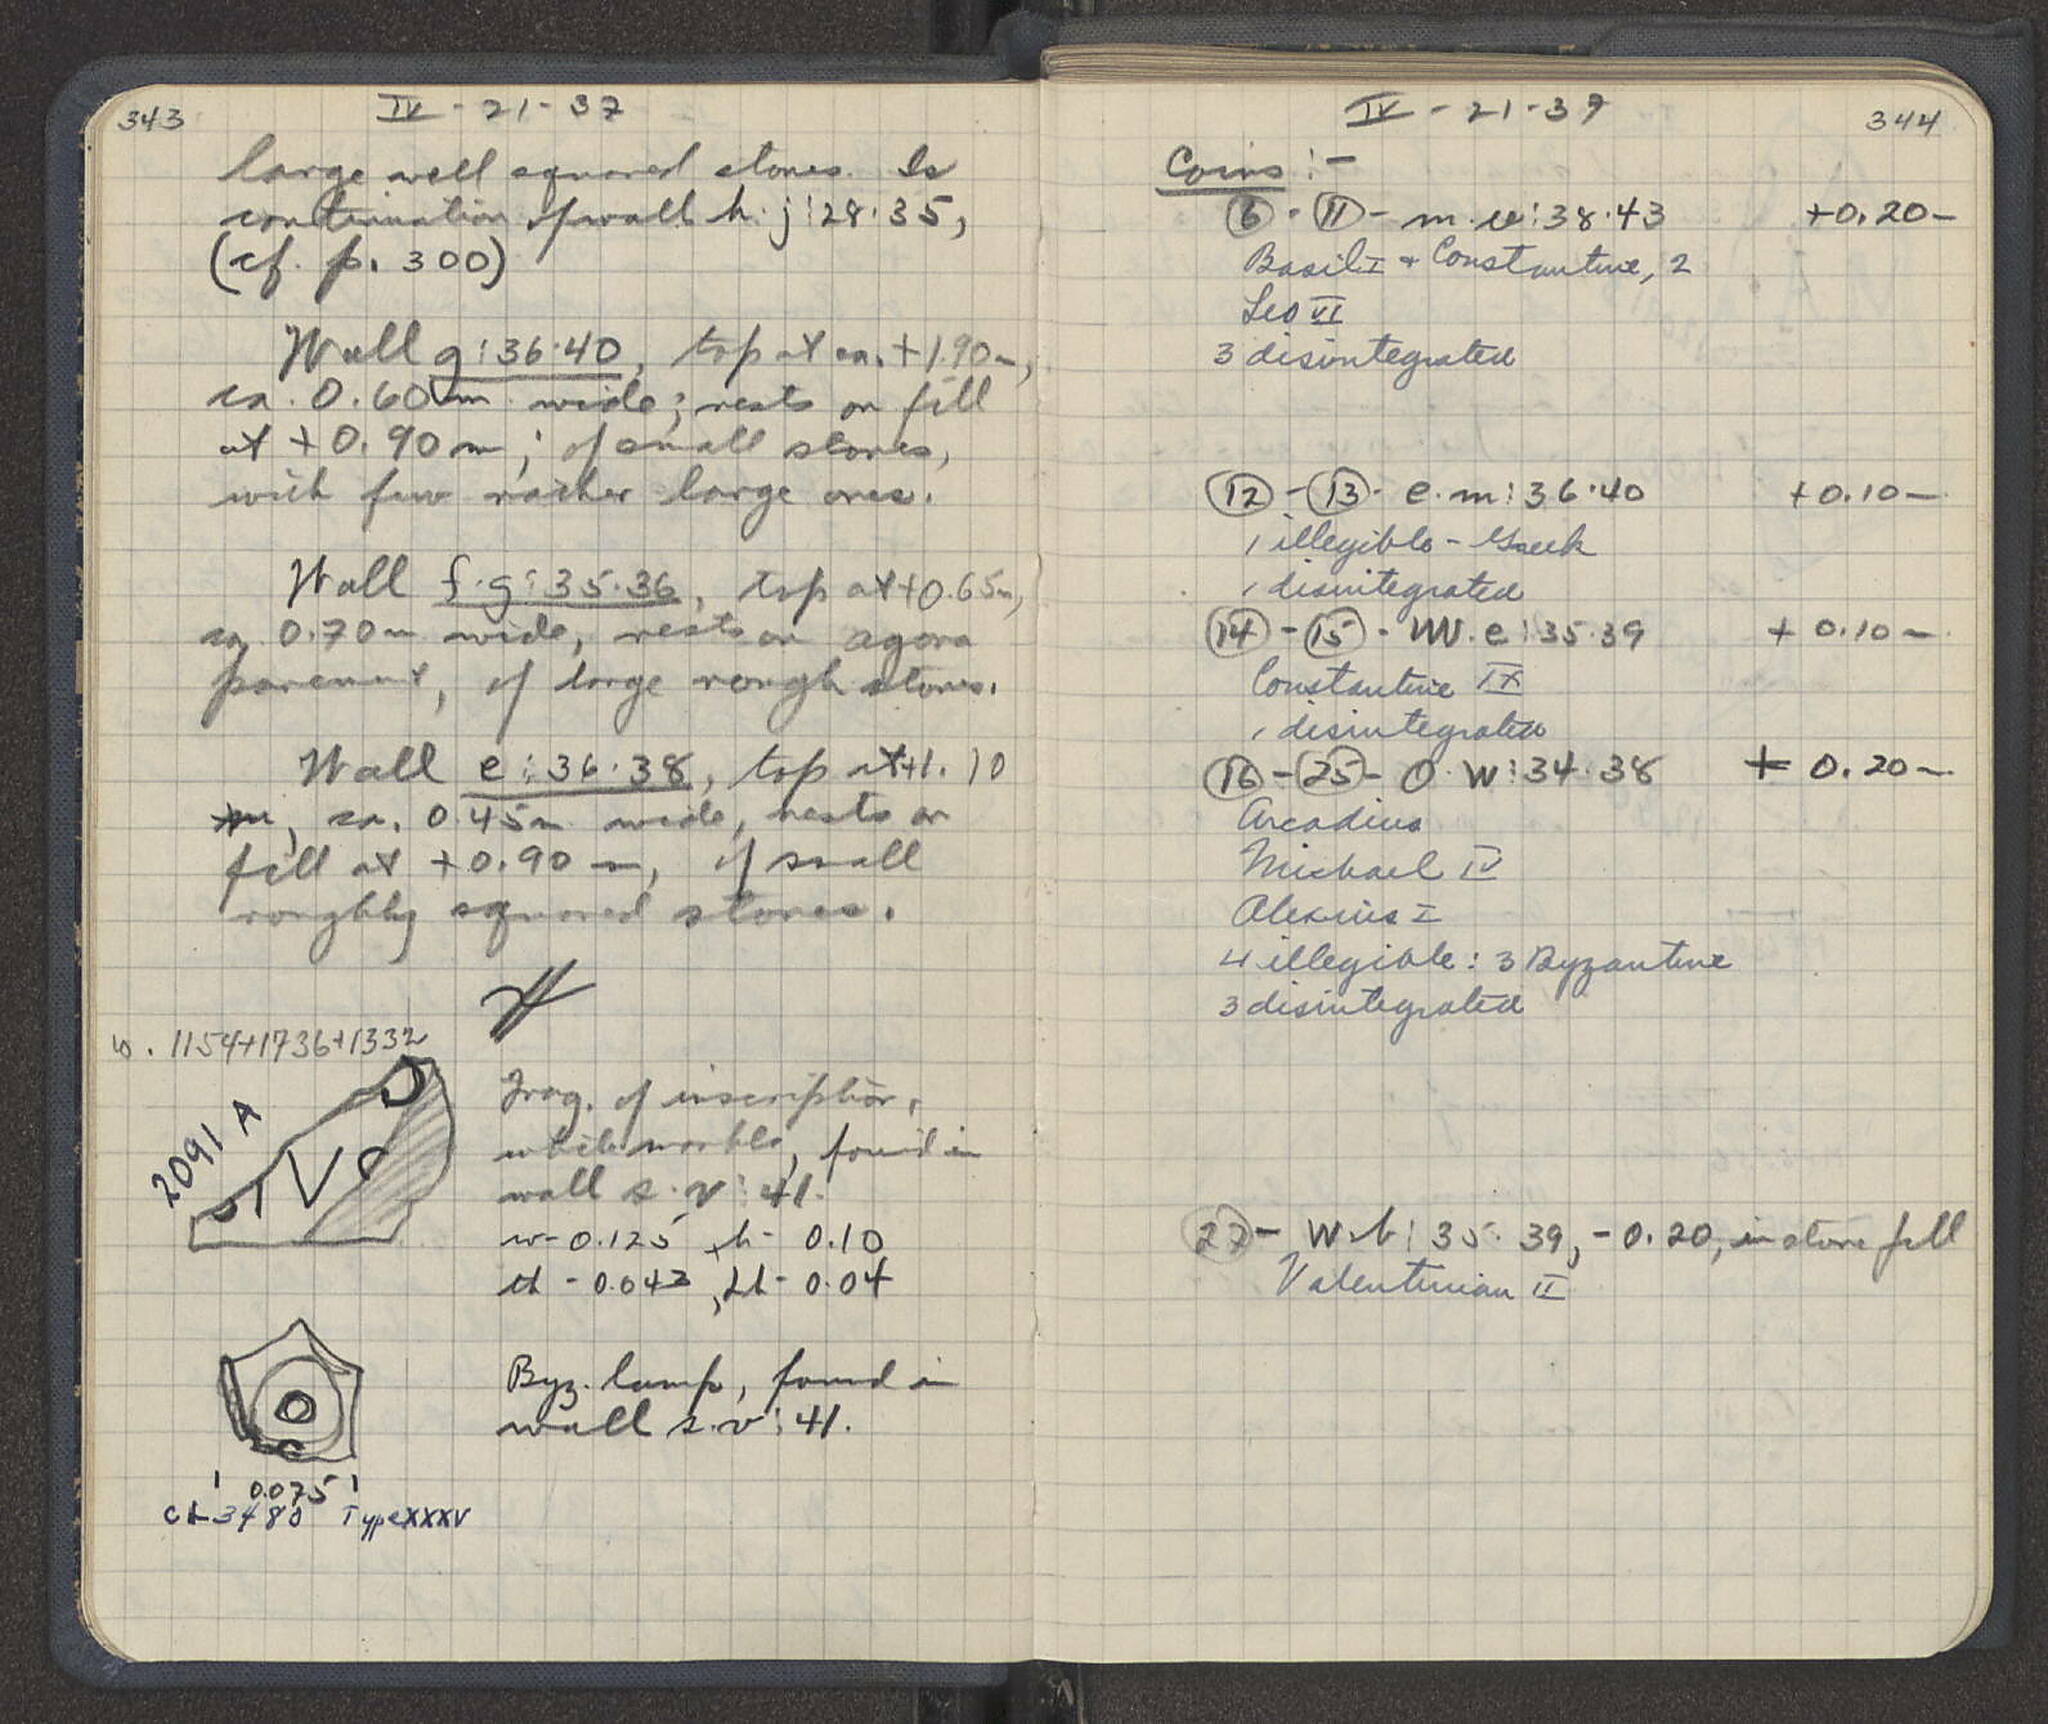 343
IV - 21 - 37
large well squared stones. Is
continuation of wall h.j:28.35,
(cf. p. 300)
Wall g:36.40, top at ca. +1.90m,
ca. 0.60m wide; rests on fill
at +0.90m; of small stones,
with few rather large ones.
Wall f.g:35.36, top at +0.65m,
ca. 0.70m wide, rests on agora
pavement, of large rough stones.
Wall e:36.38, top at +1.10
m, ca. 0.45m wide, rests on
fill at +0.90m, of small
roughly squared stones.
1154+1736+1332
2091 A
Frag. of inscription,
white marble, found in
wall s.v:41.
w - 0.125, h - 0.10
th - 0.043, Lh - 0.04
Byz. lamp, found in
wall s.v:41.
0.075
CL 3480 Type XXXV
IV - 21 - 37
344
Coins:-
6 - 11 - m.v:38.43 +0.20m
Basil I + Constantine, 2
Leo VI
3 disintegrated
12 - 13 - e.m:36.40 +0.10m
1 illegible - Greek
1 disintegrated
14 - 15 - W.e:35.39 +0.10m
Constantine IX
1 disintegrated
16 - 25 - O.W:34.38 + 0.20m
Arcadius
Michael IV
Alexius I
4 illegible: 3 Byzantine
3 disintegrated
27 - W.b:35.39, -0.20, in stone fill
Valentinian II